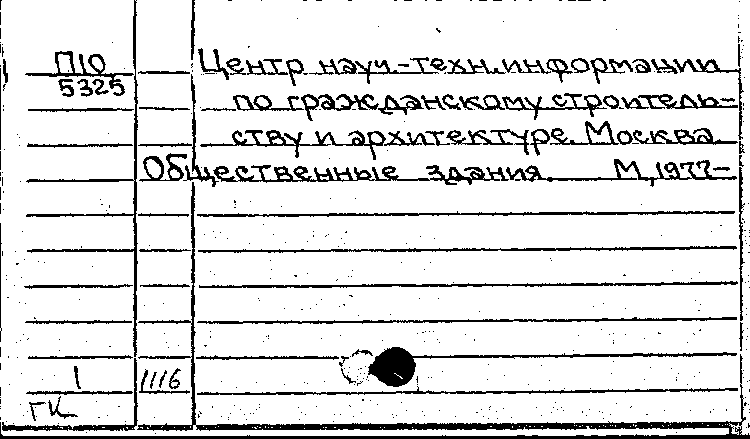 П10 Центр науч.-техн. информации
5325 по гражданскому строитель-
ству и архитектуре. Москва
Общественные здания. М, 1977-
1 1116
ГК